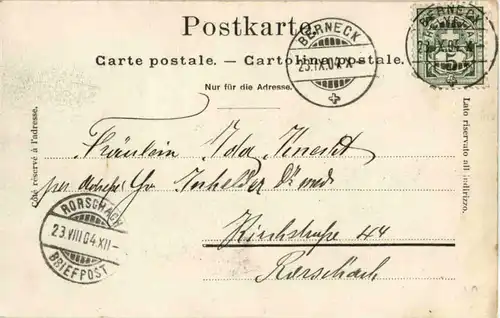 Postkarte.
Carte postale. — Cartolina postale.
Nur für die Adresse.
Côté réservé à l'adresse.
Lato riservato all'indirizzo.
BERNECK
23.IX.04.X
BERNECK
HELVETIA
5
Fräulein Ida
per Adresse Hr. Inhelder Dr med
Kirchstraße 44
Rorschach
RORSCHACH
23.VIII.04.XII-
BRIEFPOST